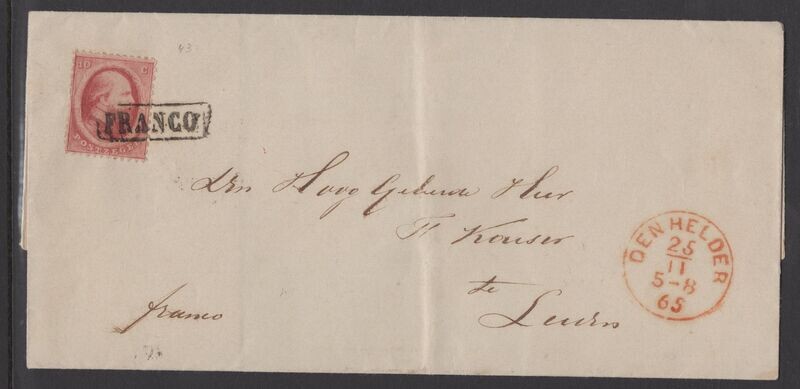 43
10 C
POSTZEGEL
FRANCO
Den Hoog Geb Heer
te
franco
DEN HELDER
25
11
5-8
65